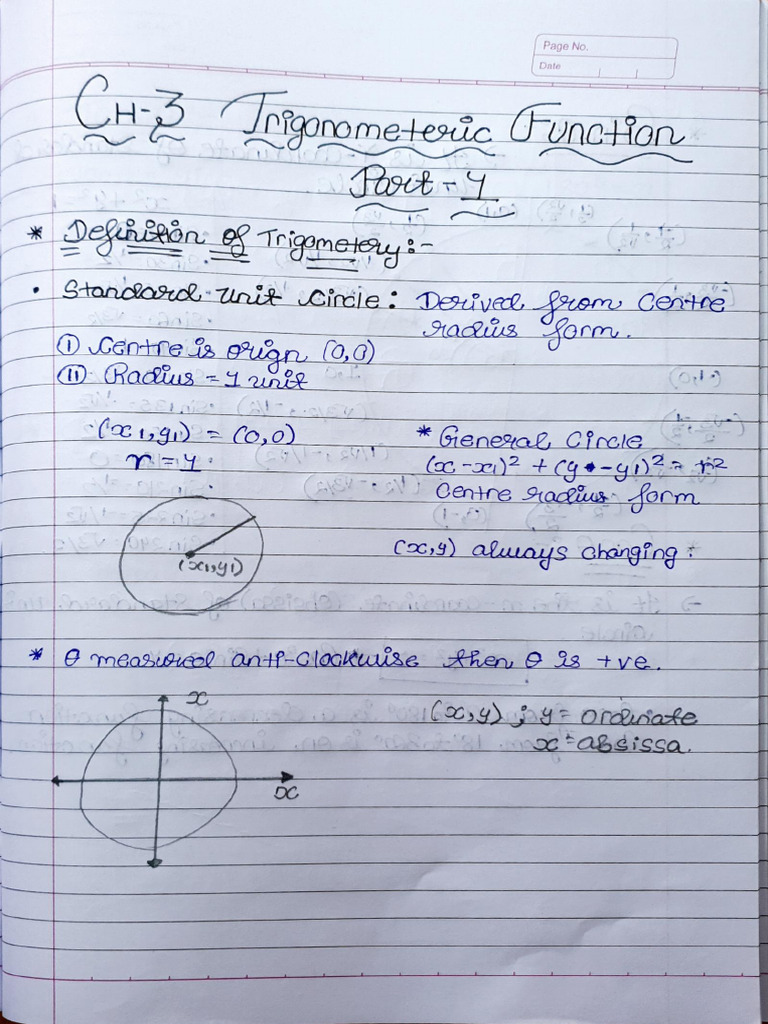 Page No.
Date
CH-3 Trigonometeric Function
Part - 1
* Definition of Trigometery:-
• Standard unit circle: Derived from centre
radius form.
(i) Centre is orign (0,0)
(ii) Radius = 1 unit
(x1, y1) = (0,0)
r = 1
* General Circle
(x - x1)² + (y - y1)² = r²
Centre radius form
(x1, y1)
(x,y) always changing:
* θ measured anti-clockwise then θ is +ve.
x
(x,y) ; y = ordinate
x = absissa.
x